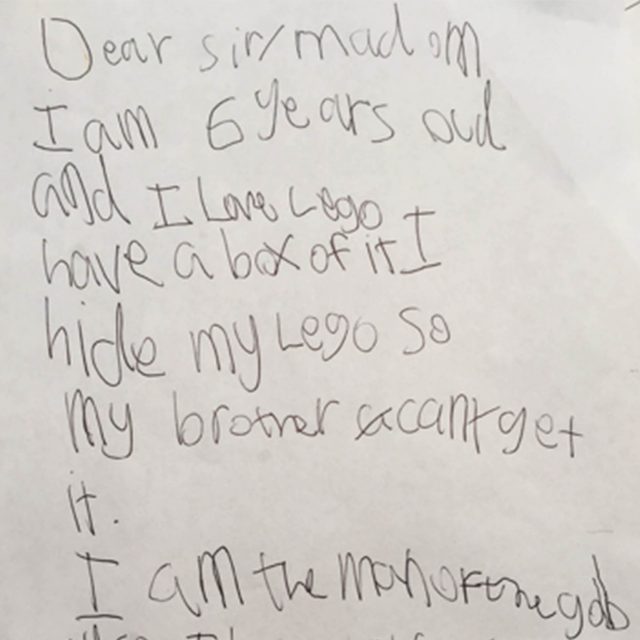 Dear sir/madom
I am 6 years oud
and I Love Lego I
have a box of it I
hide my Lego so
my brother cant get
it.
I am the man of the gob